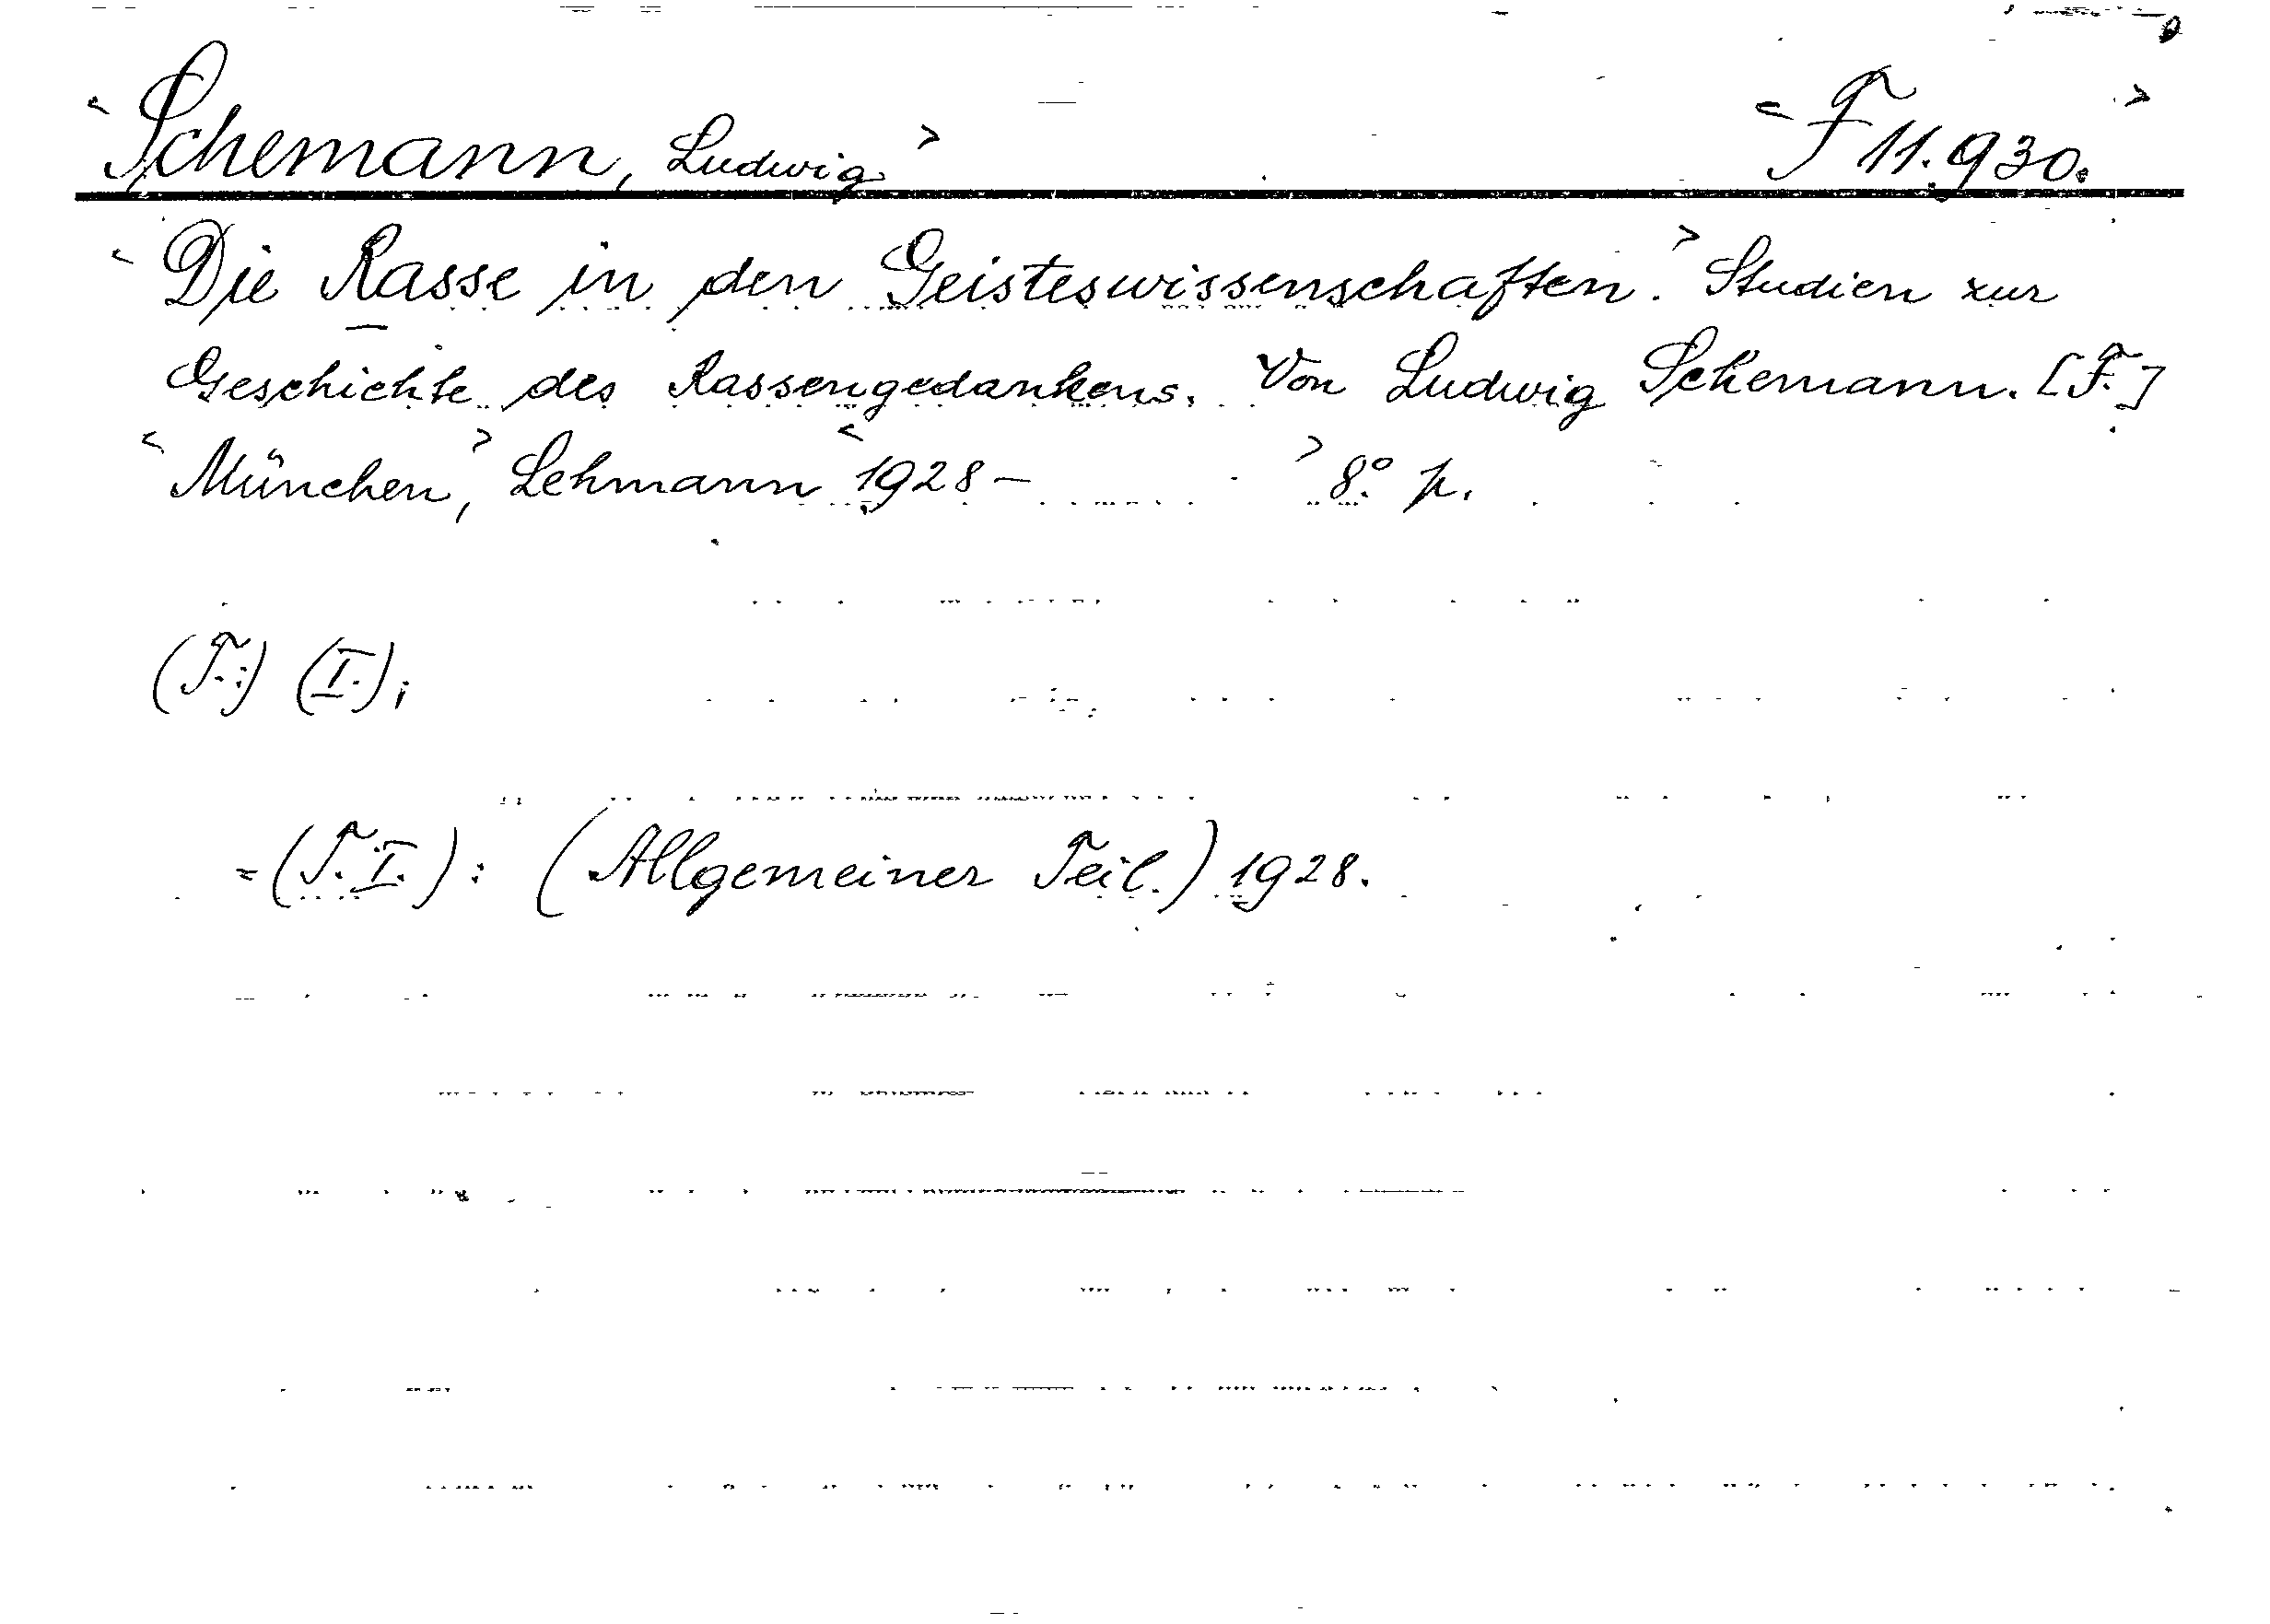 <Schemann, Ludwig> <F 11.930.>
<Die Rasse in den Geisteswissenschaften.> Studien zur
Geschichte des Rassengedankens. Von Ludwig Schemann. [F.]
<München,> Lehmann <1928 - > 8° p.
(T.:) (I.);
=(T. I.): (Allgemeiner Teil.) 1928.